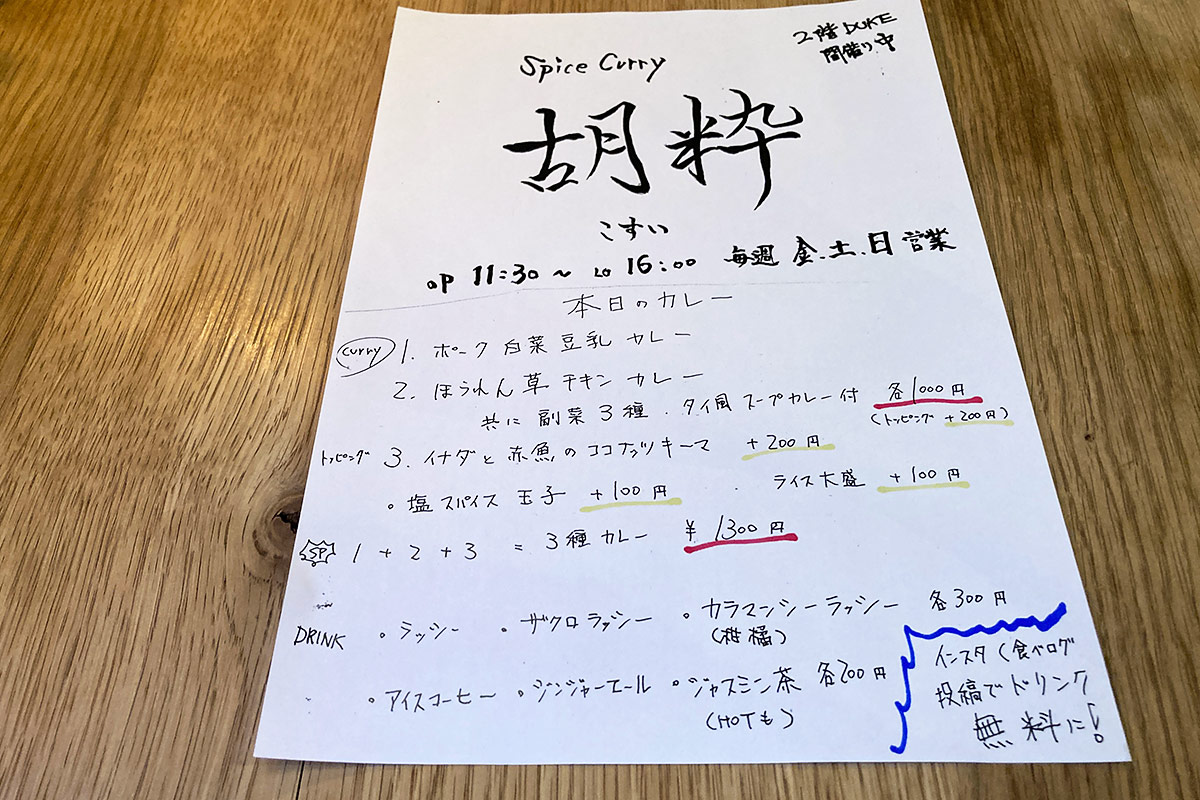 2階 DUKE
間借り中
Spice Curry
胡粋
こすい
op 11:30〜 Lo 16:00 毎週 金.土.日 営業
本日のカレー
curry 1. ポーク 白菜 豆乳 カレー
2. ほうれん草 チキン カレー
共に 副菜3種 . タイ風 スープカレー付 各1000円
(トッピング +200円)
トッピング 3. イナダと 赤魚の ココナッツ キーマ +200円
。塩 スパイス 玉子 +100円 . ライス大盛 +100円
SP 1 + 2 + 3 = 3種 カレー ¥1300円
DRINK 。ラッシー 。ザクロ ラッシー 。カラマンシー ラッシー 各300円
(柑橘)
。アイスコーヒー 。ジンジャーエール 。ジャスミン茶 各200円
(HOTも)
インスタ(食べログ
投稿でドリンク
無料に!